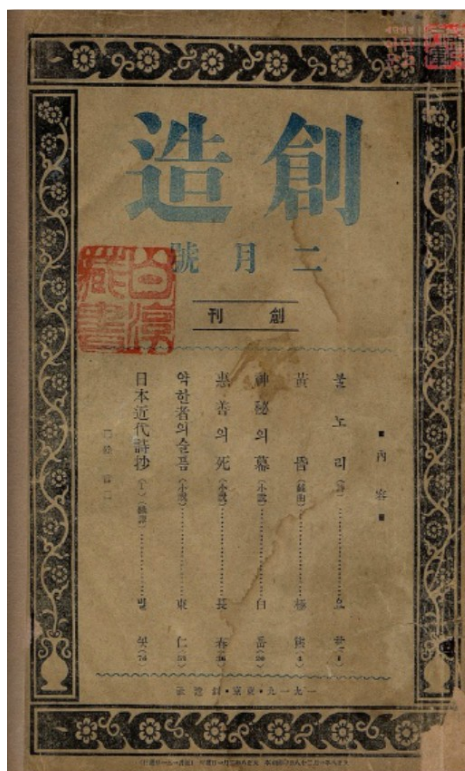 創造
二月號
創刊
■內容■
불노리(詩)…………요한
黃昏(戱曲)…………極熊
神秘의幕(小說)…………白岳
惠善의死(小說)…………長春
약한者의슬픔(小說)…………東仁
日本近代詩抄(1)(飜譯)…………벌꽃
一九一九・東京・創造社